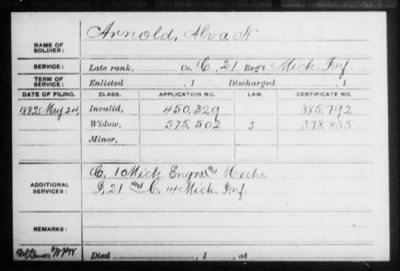 NAME OF SOLDIER: Arnold, Alva N
SERVICE: Late rank, Co. C, 21 Reg't Mich. Inf
TERM OF SERVICE: Enlisted , 1 Discharged , 1
DATE OF FILING. CLASS. APPLICATION NO. LAW. CERTIFICATE NO.
1882 May 24, Invalid, 450,329 385,792
Widow, 575,502 3
Minor,
ADDITIONAL SERVICES: C. 1 Mich Engrs and Mechs
I, 21 and C 14 Mich Inf.
REMARKS:
Died , 1 , at